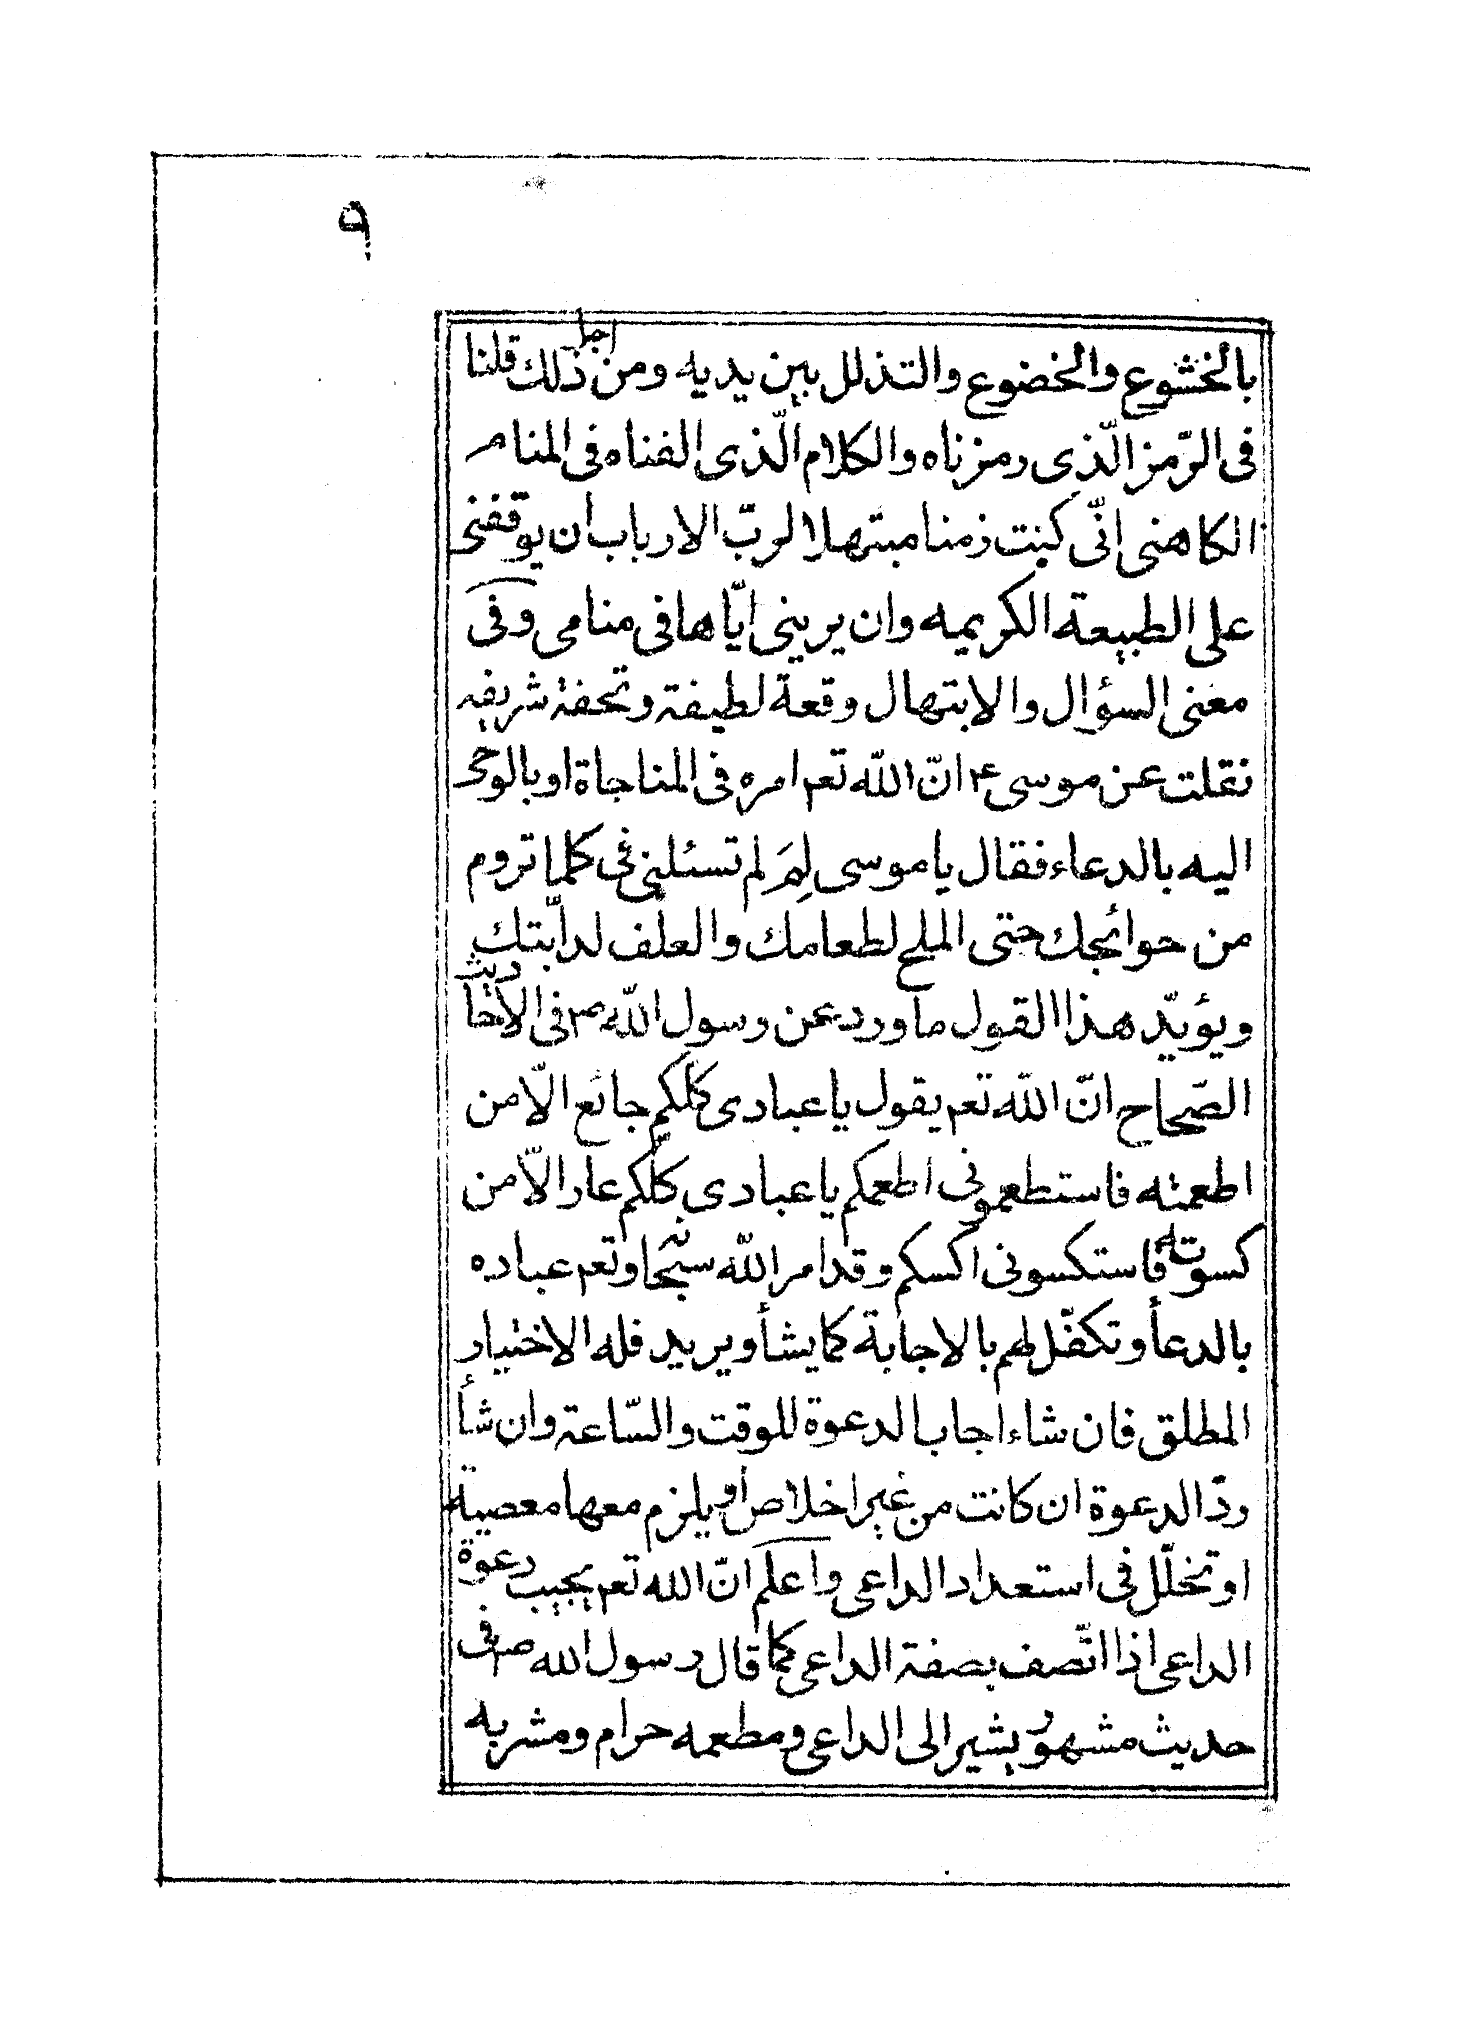 ٩
بالخشوع والخضوع والتذلل بين يديه ومن اجل ذلك قلنا
فى الرّمز الّذى رمزناه والكلام الّذى الفناه فى المنام
الكاهنى انّى كنت زمنا مبتهلا لربّ الارباب ان يوقفنى
على الطبيعة الكريمه وان يرينى ايّاها فى منامى وفى
معنى السؤال والابتهال وقعة لطيفة وتحفة شريفه
نقلت عن موسى ع م انّ اللّه تعم امره فى المناجاة او بالوحى
اليه بالدعاء فقال يا موسى لِمَ لم تسئلنى فى كلما تروم
من حوائجك حتى الملح لطعامك والعلف لدابّتك
ويؤيّد هذا القول ما ورد عن رسول اللّه صم فى الاحاديث
الصّحاح انّ اللّه تعم يقول يا عبادى كلكم جائع الّا من
اطعمته فاستطعمونى اطعمكم يا عبادى كلّكم عار الّا من
كسوته فاستكسونى اكسكم وقد امر اللّه سبحانه وتعم عباده
بالدعأ وتكفّل لهم بالاجابة كما يشأ ويريد فله الاختيار
المطلق فان شاء اجاب الدعوة للوقت والسّاعة وان شأ
ردّ الدعوة ان كانت من غير اخلاص او يلزم معها معصية
او تخلّل فى استعداد الداعى واعلم انّ الله تعم يجيب دعوة
الداعى اذا اتّصف بصفة الداعى كما قال رسول الله صم فى
حديث مشهور يشير الى الداعى ومطعمه حرام ومشربه